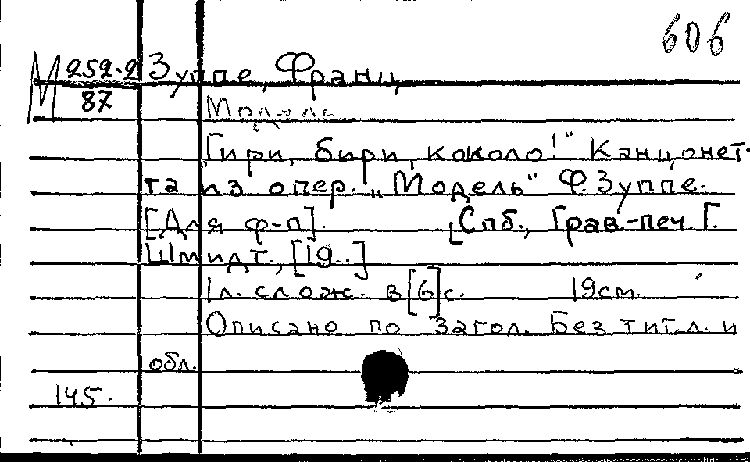 606
М 252-2 Зуппе, Франц
87 Модель
„Гири, бири, коколо!" Канцонет-
та из опер. „Модель" Ф Зуппе.
[Для ф-п]. [Спб., Грав.-печ Г.
Шмидт, [19..]
1 л. слож. в [6] с. 19 см.
Описано по загол. Без тит. л. и
обл.
145.